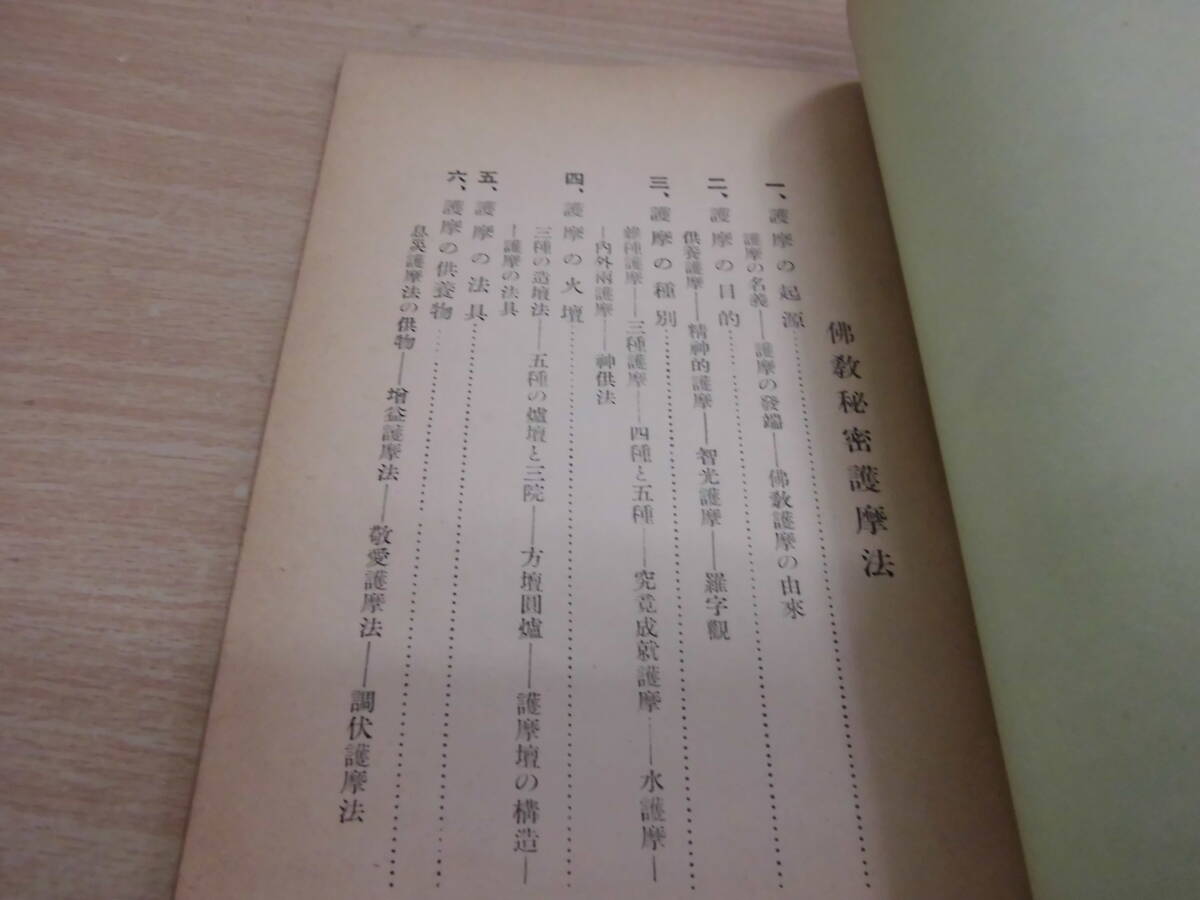 佛教秘密護摩法
一、護摩の起源
護摩の名義——護摩の發端——佛教護摩の由來
二、護摩の目的
供養護摩——精神的護摩——智光護摩——羅字觀
三、護摩の種別
雜種護摩——三種護摩——四種と五種——究竟成就護摩——水護摩—
—內外兩護摩——神供法
四、護摩の火壇
三種の造壇法——五種の爐壇と三院——方壇圓爐——護摩壇の構造—
—護摩の法具
五、護摩の法具
六、護摩の供養物
息災護摩法の供物——增益護摩法——敬愛護摩法——調伏護摩法